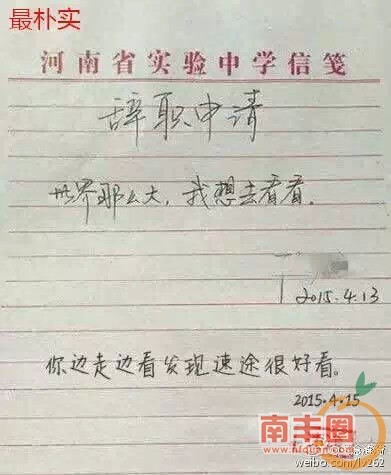 最朴实
河南省实验中学信笺
辞职申请
世界那么大，我想去看看。
2015.4.13
你边走边看发现速途很好看。
2015.4.15
南丰圈
nfquan.com
weibo.com/lv262